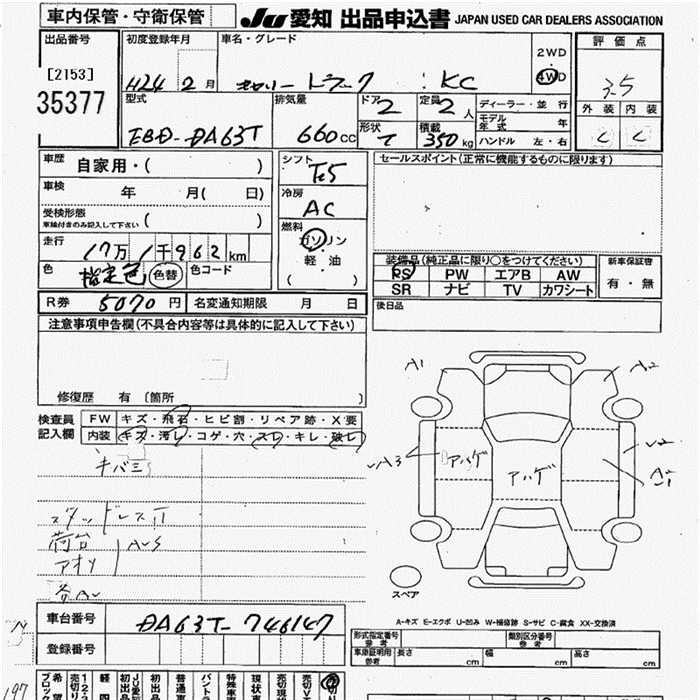 車内保管・守衛保管
JU 愛知 出品申込書 JAPAN USED CAR DEALERS ASSOCIATION
出品番号
[2153]
35377
初度登録年月
H24 2月
車名・グレード
キャリー トラック KC
2WD
4WD
評価点
3.5
外装 内装
C C
型式
EBD-DA63T
排気量
660cc
ドア
2
形状
定員
2人
積載
350kg
ディーラー・並行
モデル年式 年
ハンドル 左・右
車歴
自家用・( )
車検 年 月( 日)
受検形態
車検付きのみ記入して下さい ( )
走行
17万1千962km
色
指定色 色替
色コード
シフト
F5
冷房
AC
燃料
ガソリン
軽・油
( )
セールスポイント(正常に機能するものに限ります)
装備品(純正品に限り○をつけてください)
PS PW エアB AW
SR ナビ TV カワシート
新車保証書
有・無
後日品
R券 5070円
名変通知期限 月 日
注意事項申告欄(不具合内容等は具体的に記入して下さい)
修復歴 有 〔箇所 〕
検査員記入欄
FW キズ・飛石・ヒビ割・リペア跡・X要
内装 キズ・汚レ・コゲ・穴・スレ・キレ・破レ
キバミ
スタッドレスTI
荷台
アオリ
AUS
各AU
A1
A2
UA3
アハゲ
アハゲ
U2
スペア
A-キズ E-エクボ U-凹み W-補修跡 S-サビ C-腐食 XX-交換済
車台番号
DA63T-746147
登録番号
形式指定番号 参考
類別区分番号 参考
車庫証明用 参考 長さ cm 幅 cm 高さ cm
197